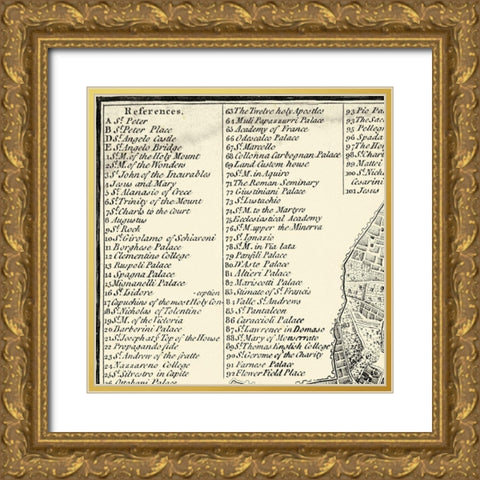 References.
A St. Peter
B St. Peter Place
D St. Angelo Castle
E St. Angelo Bridge
1 St. M. of the Holy Mount
2 St. M. of the Wonders
3 St. John of the Incurables
4 Jesus and Mary
5 St. Alanasio of Grece
6 St. Trinity of the Mount
7 St. Charls to the Court
8 Augustus
9 St. Rock
10 St. Girolamo of Schiaroni
11 Borghese Palace
12 Clementino College
13 Ruspoli Palace
14 Spagna Palace
15 Mignanelli Palace
16 St. Isidore -ception
17 Capuchins of the most Holy Con-
18 St. Nicholas of Tolentine
19 St. M. of the Victoria
20 Barberini Palace
21 St. Joseph at ye Top of the House
22 Propagando side
23 St. Andrew of the fratte
24 Nazzareno College
25 St. Silvestro in Capite
26 Ottoboni Palace
63 The Twelve holy Apostles
64 Muli Papazzurri Palace
65 Academy of France
66 Odescalco Palace
67 St. Marcello
68 Collohna Carbegnan Palace
69 Land Custom house
70 St. M. in Aquiro
71 The Roman Seminary
72 Giustiniani Palace
73 St. Eustachio
74 St. M. to the Martyro
75 Ecclesiastical Academy
76 St. M. upper the Minerva
77 St. Ignazio
78 St. M. in Via lata
79 Panfili Palace
80 D'Aste Palace
81 Altieri Palace
82 Mariscotti Palace
83 Stimate of St. Francis
84 Valle St. Andrews
85 St. Pantaleon
86 Caraccioli Palace
87 St. Lawrence in Domaso
88 St. Mary of Monserrato
89 St. Thomas English College
90 St. Gerome of the Charity
91 Farnese Palace
92 Flower Field Place
93 Pio Pa
94 The Sac
95 Pelleg
96 Spada
97 The Ho
98 St. Char
99 Mattei
100 St. Nich
Cesarini
101 Jesus